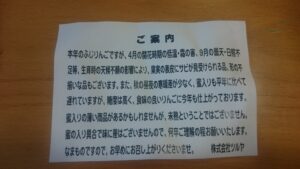 ご案内
本年のふじりんごですが、4月の開花時期の低温・霜の害、9月の曇天・日照不
足等、生育時の天候不順の影響により、果実の表皮にサビが見受けられる品、形の不
揃いな品もございます。また、秋の昼夜の寒暖差が少なく、蜜入りも平年に比べて
遅れていますが、糖度は高く、食味の良いりんごに今年も仕上がっております。
蜜入りの薄い商品があるかもしれませんが、未熟ということではございません。
蜜の入り具合で味に差はございませんので、何卒ご理解の程お願いいたします。
なまものですので、お早めにお召し上がりくださいませ。 株式会社ツルヤ